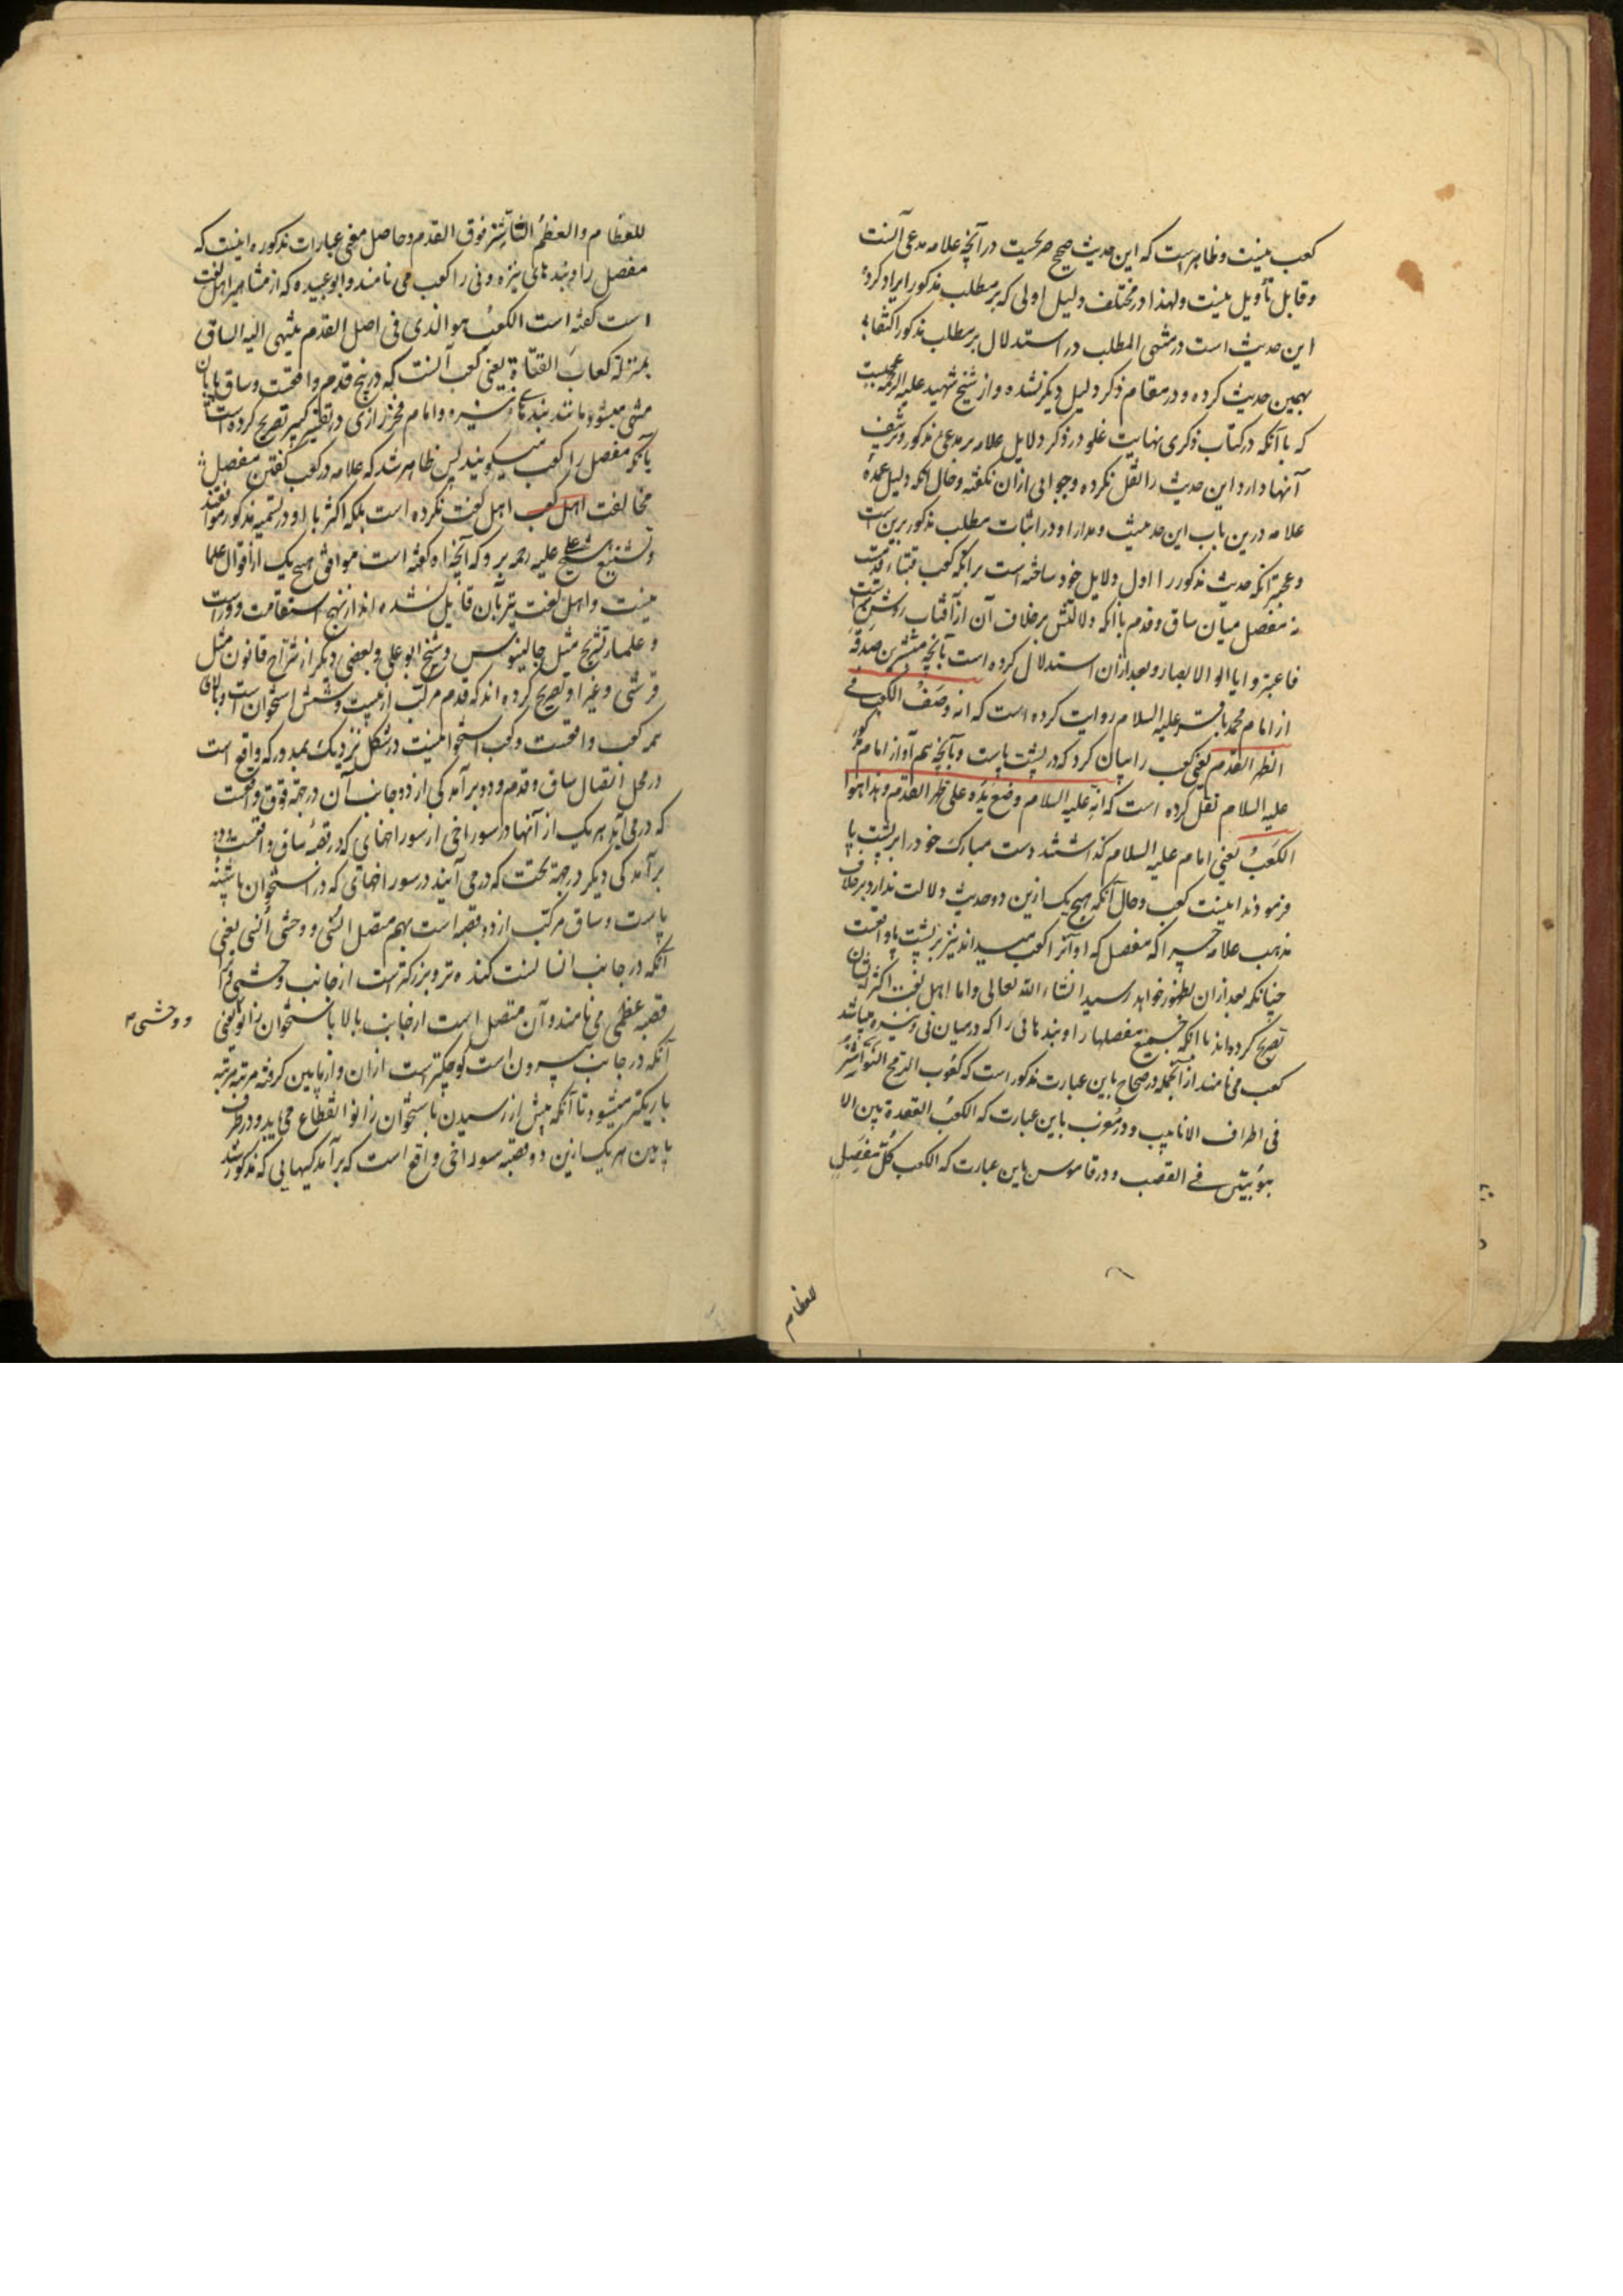 کعب نیست و ظاهر است که این حدیث صحیح صریحیست در آنچه علامه مدعی آنست
و قابل تأویل نیست و لهذا در مختلف دلیل اولی که بر مطلب مذکور ایراد کرده
این حدیث است در منتهی المطلب در استدلال بر مطلب مذکور اکتفا
بهمین حدیث کرده و در مقام ذکر دلیل دیگر نشده و از شیخ شهید علیه الرحمه عجبیست
که با آنکه در کتاب ذکری نهایت غلو در ذکر دلایل علامه بر مدعی مذکور و تزییف
آنها دارد این حدیث را نقل نکرده و جوابی ازان نگفته و حال آنکه دلیل عمدهٔ
علامه درین باب این حدیث و مدار او در اثبات مطلب مذکور برین است
و عجبتر آنکه حدیث مذکور را اول دلایل خود ساخته است بر آنکه کعب قبهٔ قدمست
نه مفصل میان ساق و قدم با آنکه دلالتش بر خلاف آن از آفتاب روشن‌تر است
فاعتبروا یا اولی الابصار و بعد ازان استدلال کرده است بآنچه میسر
از امام محمد باقر علیه السلام روایت کرده است که انه وصف الکعب فی
ظهر القدم یعنی کعب را بیان کرد که در پشت پاست و بآنچه هم او از امام مذکور
علیه السلام نقل کرده است که انه علیه السلام وضع یده علی ظهر القدم و هذا هو
الکعب یعنی امام علیه السلام گذاشتند دست مبارک خود را بر پشت پا
فرمودند اینست کعب و حال آنکه هیچ یک ازین دو حدیث دلالت ندارد بر خلاف
مذهب علامه چرا که مفصل که او آنرا کعب میداند نیز بر پشت پا واقعست
چنانکه بعد ازان بظهور خواهد رسید انشاء الله تعالی و اما اهل لغت اکثر ایشان
تصریح کرده‌اند باآنکه جمیع مفصلها را و بندهائی را که در میان نی و نیزه میباشد
کعب می‌نامند از آنجمله در صحاح باین عبارت مذکور است که کعوب الرمح النواشز
فی اطراف الانابیب و در مغرب باین عبارت که الکعب العقدة بین الا
نبوبتین فی القصب و در قاموس باین عبارت که الکعب کل مفصل
للعظام
للعظام و العظم الناشز فوق القدم و حاصل معنی عبارات مذکوره اینست که
مفصل را و بندهای نیزه و نی را کعب می نامند و ابو عبیده که از مشاهیر اهل لغت
است گفته است الکعب هو الذی فی اصل القدم ینتهی الیه الساق
بمنزلة کعاب القناة یعنی کعب آنست که در بیخ قدم واقعست و ساق پا بان
منتهی میشود مانند بندهای نیزه و امام فخر رازی در تفسیر کبیر تصریح کرده است
بآنکه مفصل را کعب میگویند پس ظاهر شد که علامه در کعب گفتن مفصل
مخالفت اهل کعب اهل لغت نکرده است بلکه اکثر با او در تسمیه مذکور موافقند
و تشنیع شیخ علی علیه الرحمه برو که آنچه او گفته است موافق هیچ یک از اقوال علما
نیست و اهل لغت نیز بان قایل نشده اند از نهج استقامت دور است
و علمای تشریح مثل جالینوس و شیخ ابو علی و بعضی دیگر از شراح قانون مثل
قرشی و غیر او تصریح کرده اند که قدم مرکب از بیست و شش استخوان است و بالای
همه کعب واقعست و کعب استخوانیست در شکل نزدیک بمدور که واقع است
در محل اتصال ساق و قدم و دو برآمدگی از دو جانب آن در جهة فوق واقعست
که در می آید هر یک از آنها در سوراخی از سوراخهای که در قصبهٔ ساق واقعست و دو
برآمدگی دیگر در جهة تحت که در می آیند در سوراخهای که در استخوان پاشنه
پاست و ساق مرکب از دو قصبه است بهم متصل انسی و وحشی انسی یعنی
آنکه در جانب انسانست کنده تر و بزرگتر است از جانب وحشی و آنرا
قصبه عظمی می نامند و آن متصل است از جانب بالا باستخوان زانو یعنی
و وحشی
آنکه در جانب بیرون است کوچکتر است ازان و از پایین گرفته مرتبه مرتبه
باریکتر میشود تا آنکه پیش از رسیدن باستخوان زانو انقطاع می یابد و در طرف
پایین هر یک ازین دو قصبه سوراخی واقع است که برآمدگیهایی که مذکور شد